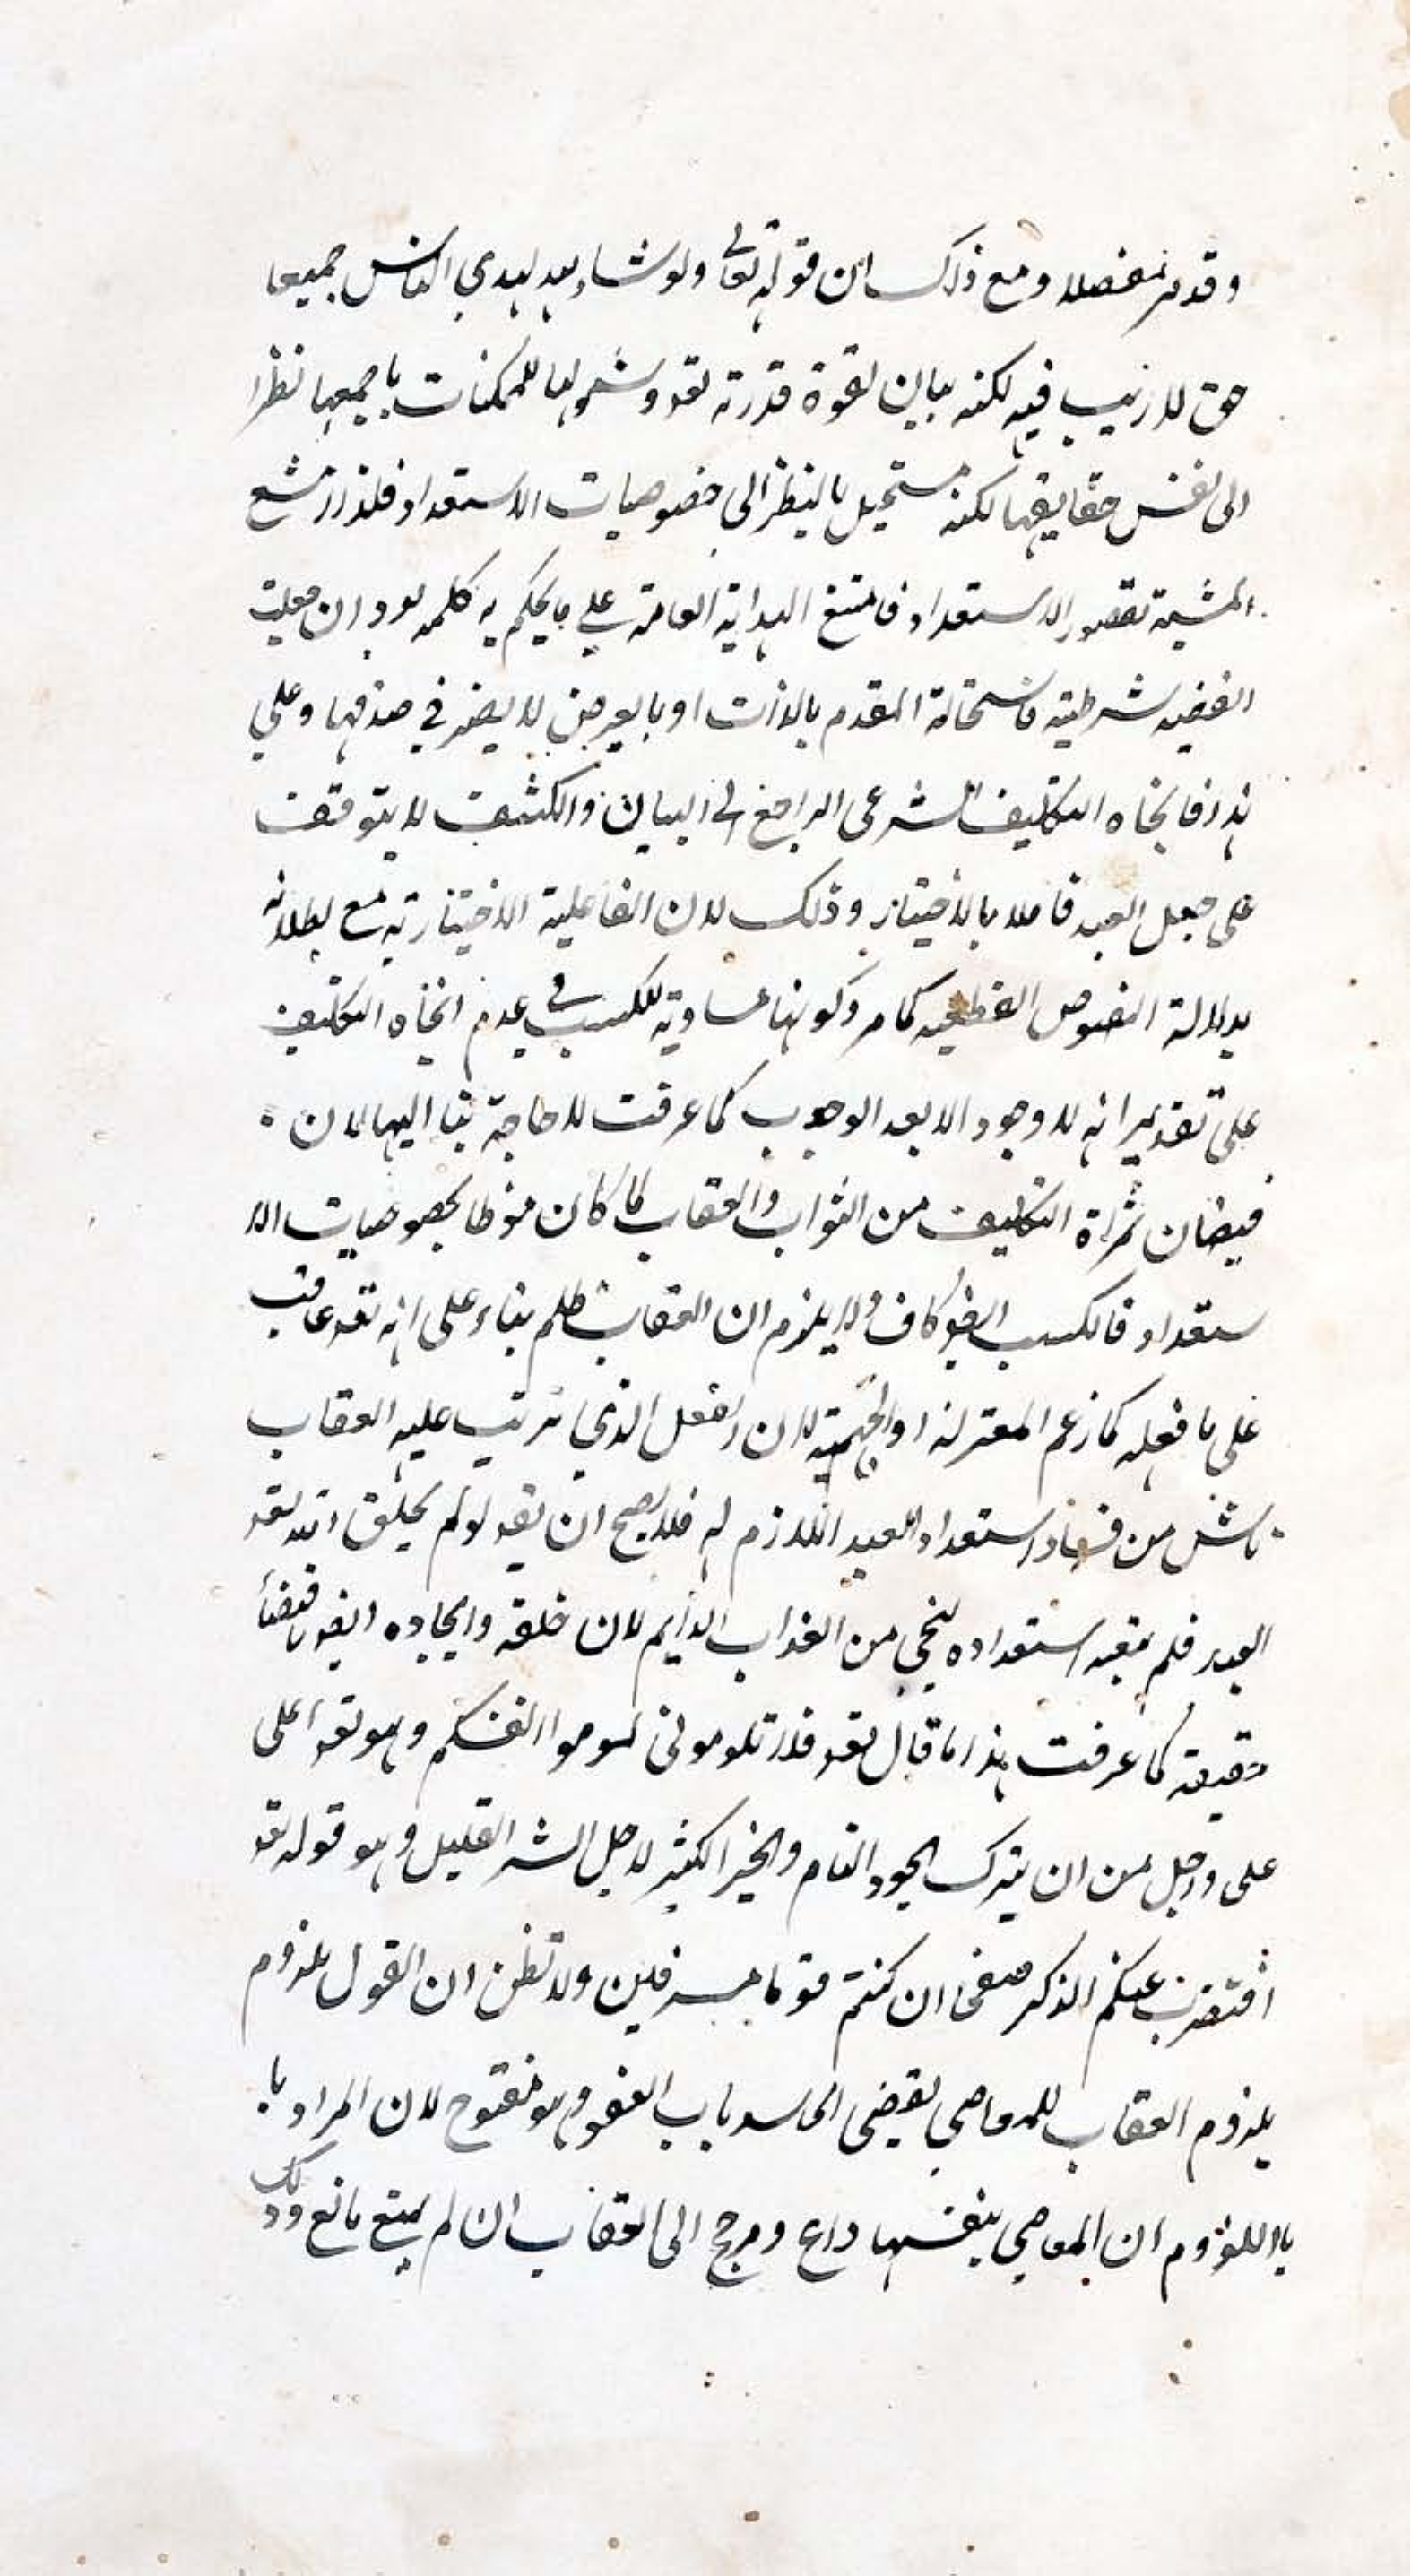 وقد مر مفصلا ومع ذلك ان قوله تعالى ولو شاء لهدى الناس جميعا
حق لا ريب فيه لكنه بيان لقوة قدرته تعه وشمولها للممكنات باجمعها نظرا
الى نفس حقايقها لكنه مستحيل بالنظر الى خصوصيات الاستعداد فلذا امتنع
المشية لقصور الاستعداد فامتنع الهداية العامة على ما يحكم به كلمه لو وان جعلت
القضيه شرطية فاستحالة المقدم بالذات او بالعرض لا يضر في صدقها وعلى
هذا فاتجاه التكليف الشرعى الراجع الى البيان والكشف لا يتوقف
على جعل العبد فاعلا بالاختيار وذلك لان الفاعلية الاختيارية مع بطلانه
بدلالة النصوص القطعيه كما مر وكونها مساوية للكسب في عدم اتجاه التكليف
على تقدير انه لا وجود الا بعد الوجوب كما عرفت لا حاجة بنا اليها لان
فيضان ثمراة التكليف من الثواب والعقاب لما كان منوطا بخصوصيات الا
ستعداد فالكسب ايضا كاف ولا يلزم ان العقاب ظلم بناء على انه تعه عاقب
على ما فعله كما زعم المعتزلة او الجهمية لان الفعل الذي ترتب عليه العقاب
ناش من فساد استعداد العبد اللازم له فلا يصح ان يقه لو لم يخلق الله تعه
العبد فلم استعداده لينجى من العذاب الدايم لان خلقه وايجاده ايضا باقتضاء
حقيقته كما عرفت هذا ما قال تعه فلا تلومونى لوموا انفسكم وهو تعه اعلى
على واجل من ان يترك الجود التام والخير الكثير لاجل الشر القليل وهو قوله تعه
افنضرب عنكم الذكر صفحا ان كنتم قوما مسرفين ولا تظن ان القول بلزوم
بلزوم العقاب للمعاصى يفضى الى سد باب العفو وهو مفتوح لان المراد با
باللزوم ان المعاصى بنفسها داع ومرجح الى العقاب ان لم يمنع مانع وذلك